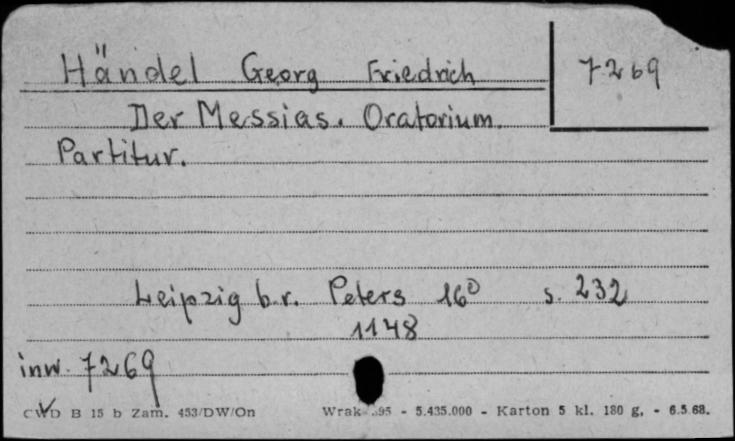 Händel Georg Friedrich 7269
Der Messias. Oratorium.
Partitur.
Leipzig b.r. Peters 16⁰ s. 232
1148
inw. 7269
CWD B 15 b Zam. 453/DW/On Wrak 95 - 5.435.000 - Karton 5 kl. 180 g. - 6.5.68.